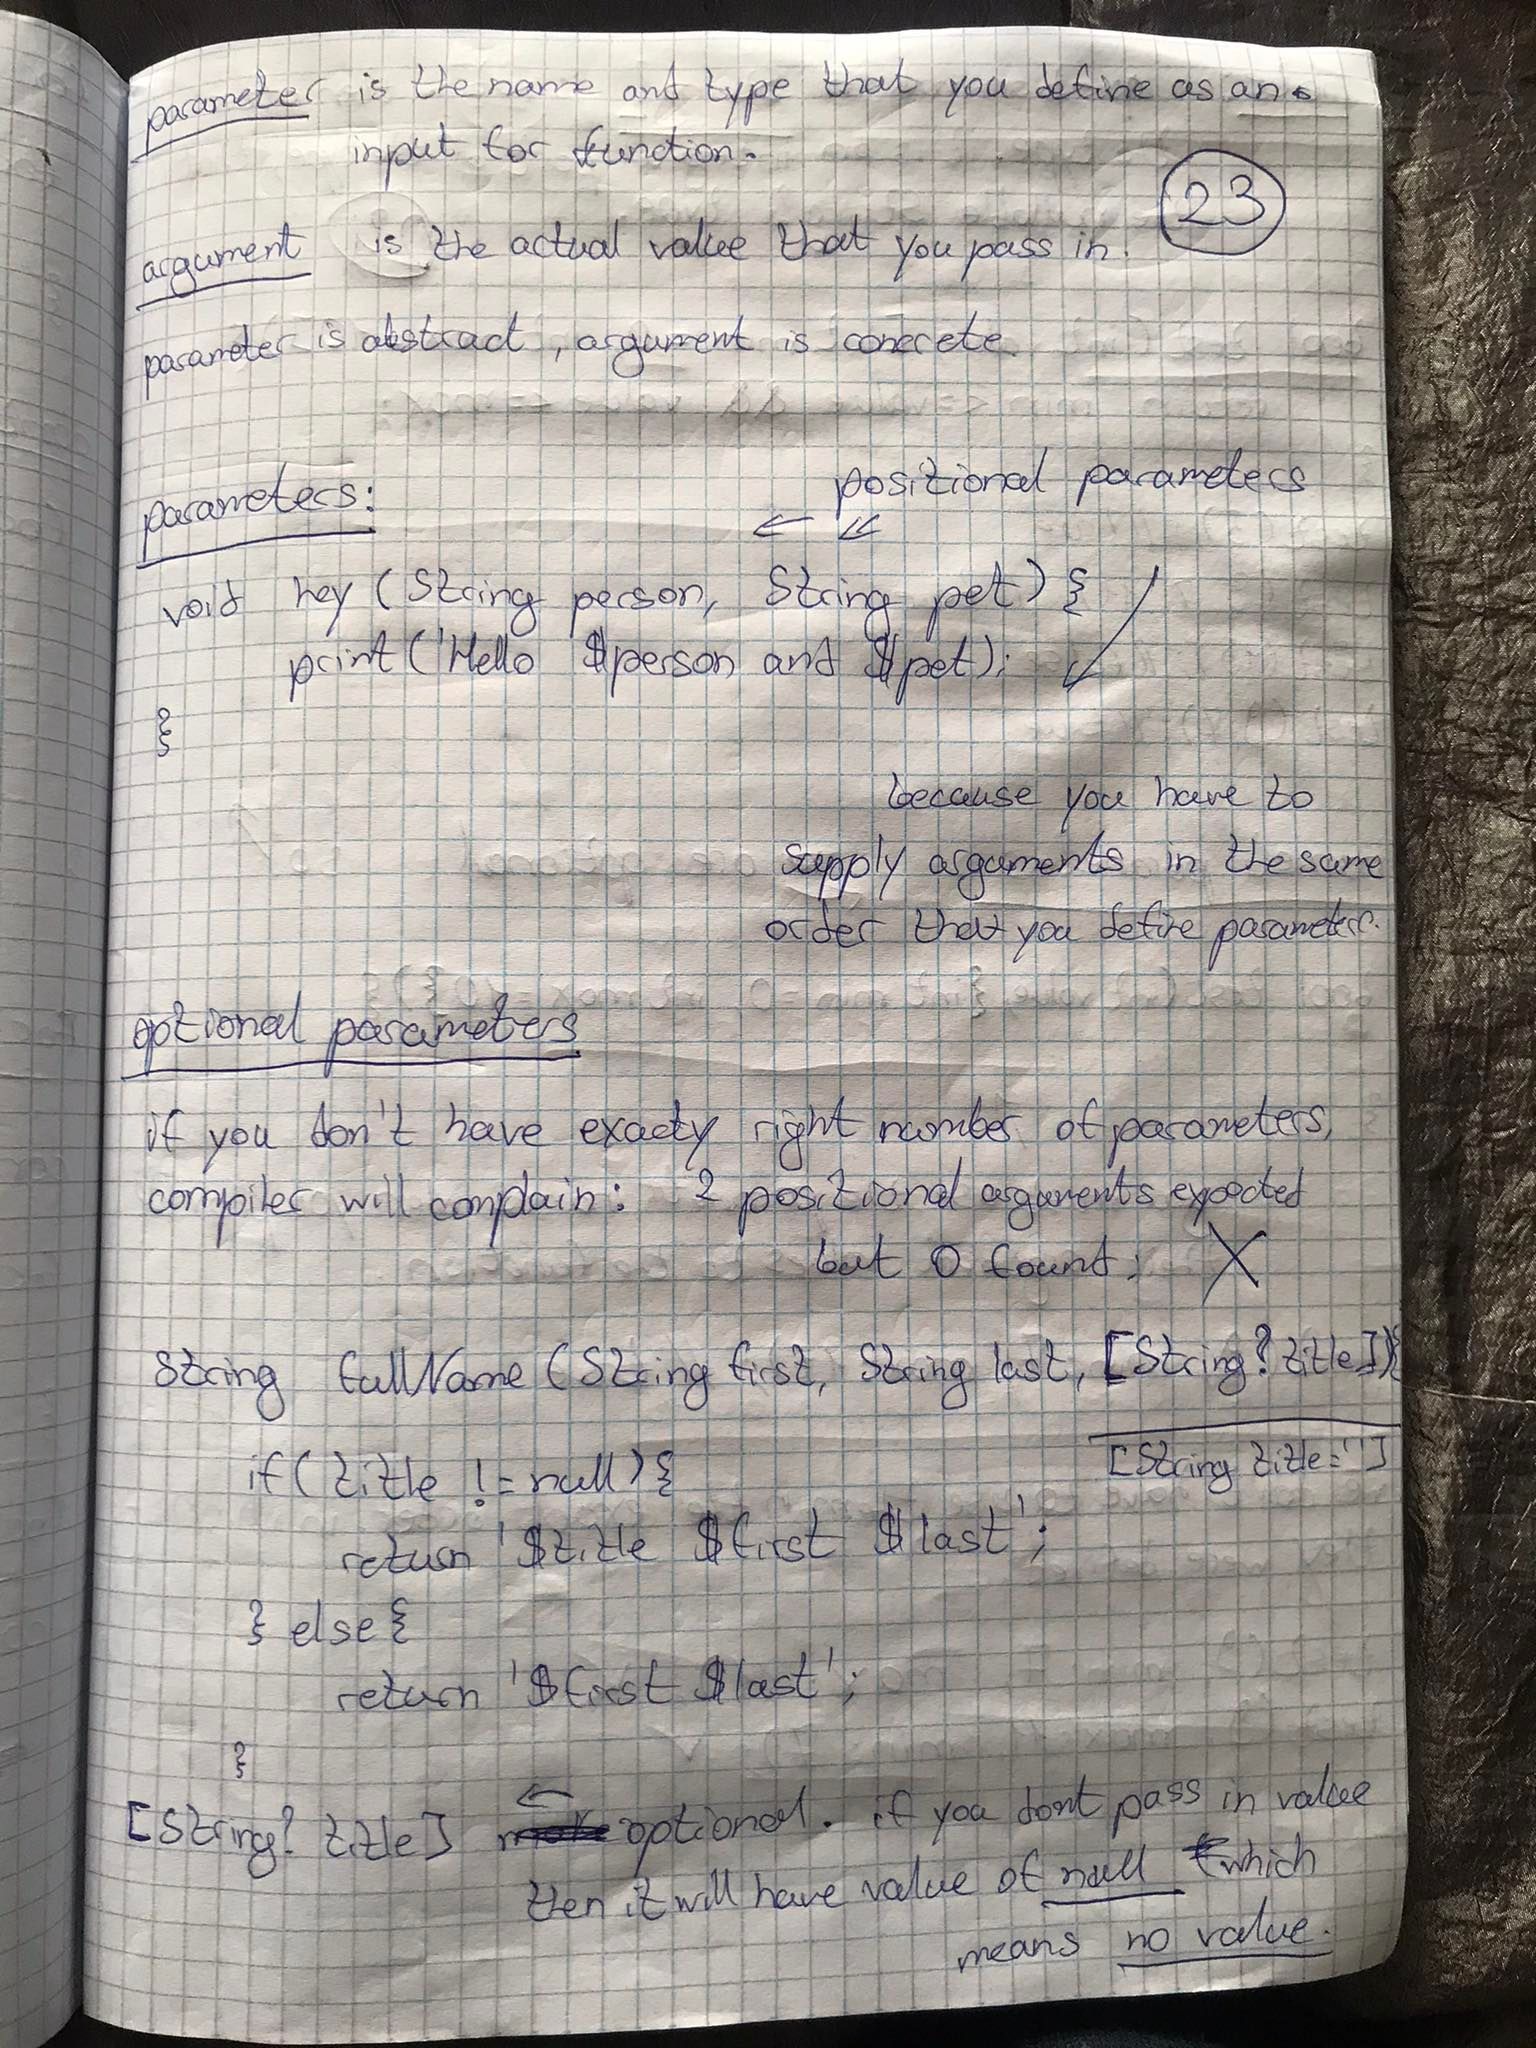 parameter is the name and type that you define as an
input for function.
23
argument is the actual value that you pass in.
parameter is abstract, argument is concrete.
parameters:
positional parameters
void hey (String person, String pet) {
print('Hello $person and $pet);
}
because you have to
supply arguments in the same
order that you define parameters.
optional parameters
if you don't have exacty right number of parameters,
compiler will complain: 2 positional arguments expected
but 0 found;
String fullName (String first, String last, [String? title]){
[String title='']
if(title != null){
return '$title $first $last';
} else {
return '$first $last';
}
[String? title] optional. if you dont pass in value
then it will have value of null which
means no value.